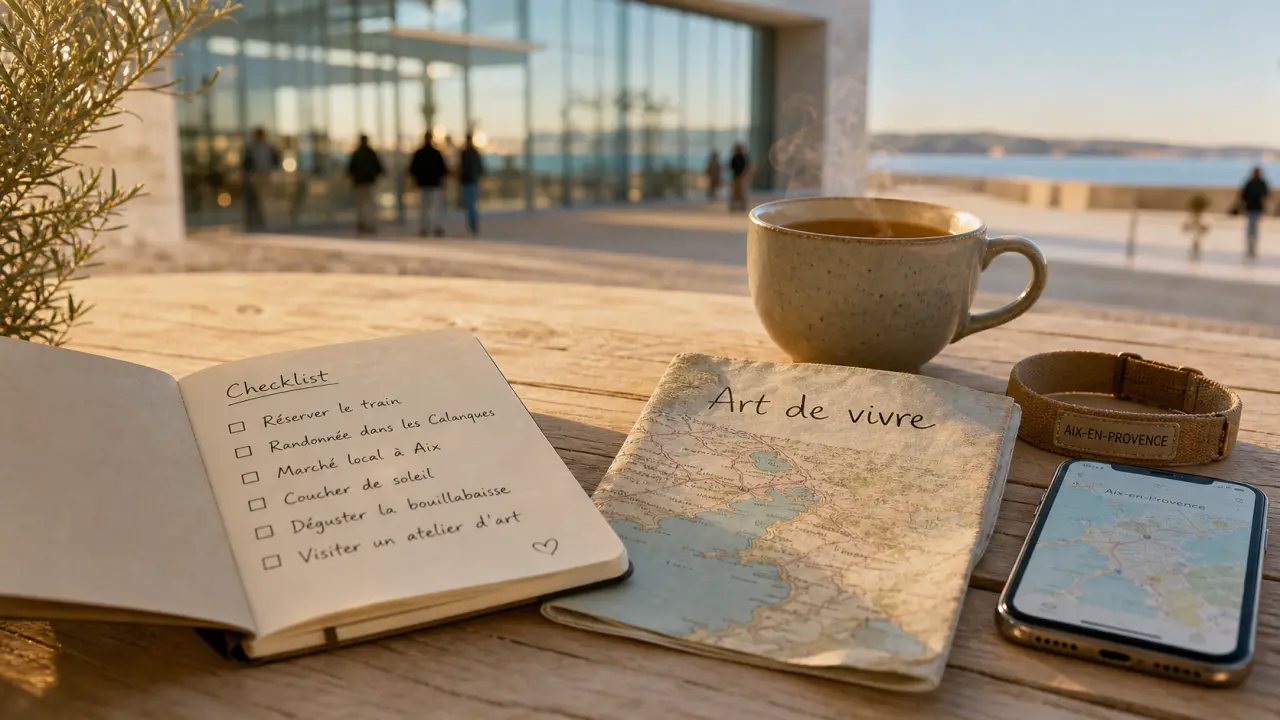 Checklist
Réserver le train
Randonnée dans les Calanques
Marché local à Aix
Coucher de soleil
Déguster la bouillabaisse
Visiter un atelier d'art
Art de vivre
AIX-EN-PROVENCE
Aix-en-Provence